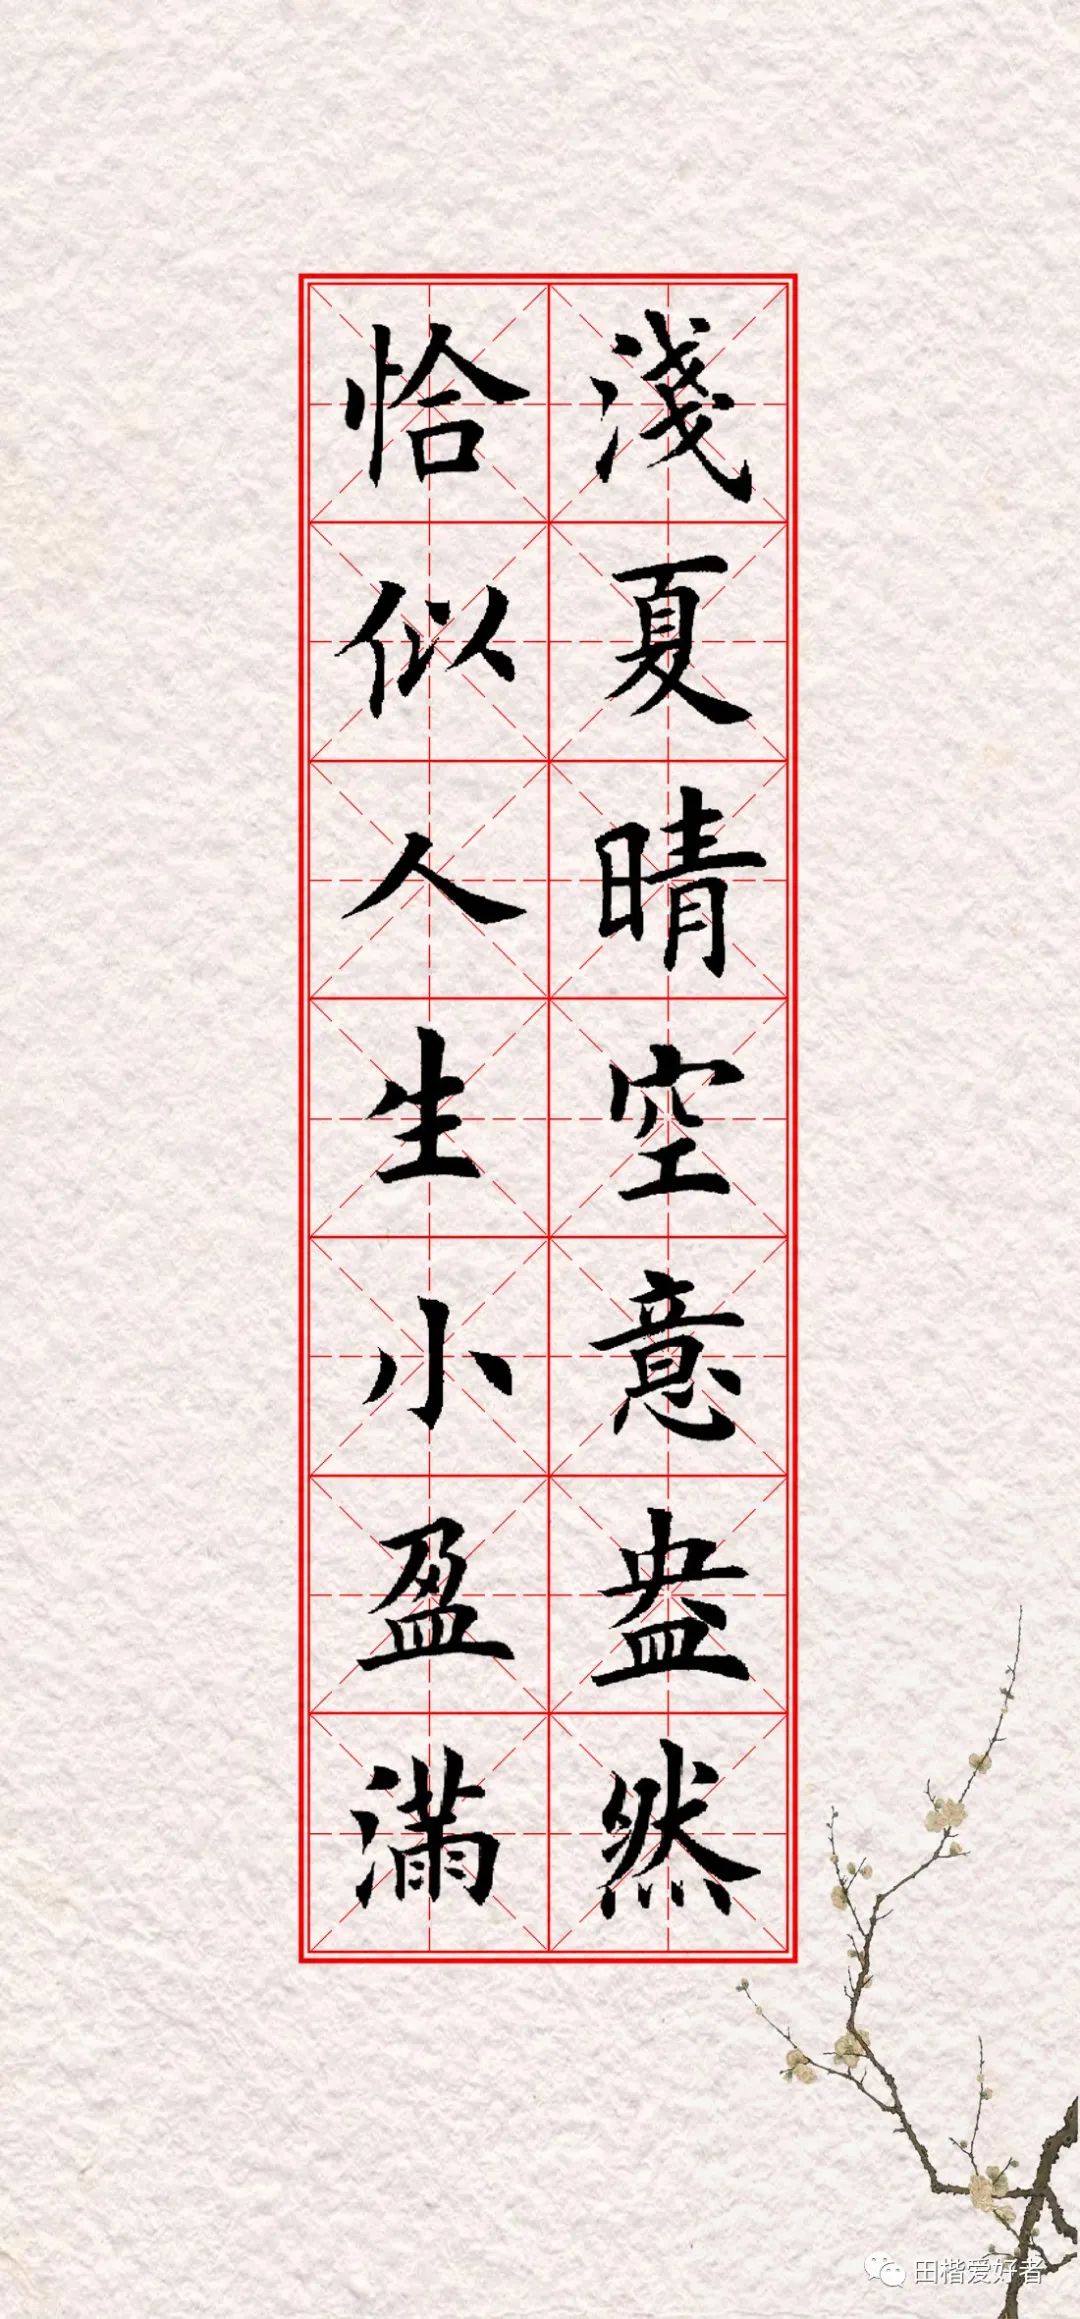 淺夏晴空意盎然
恰似人生小盈滿
田楷爱好者